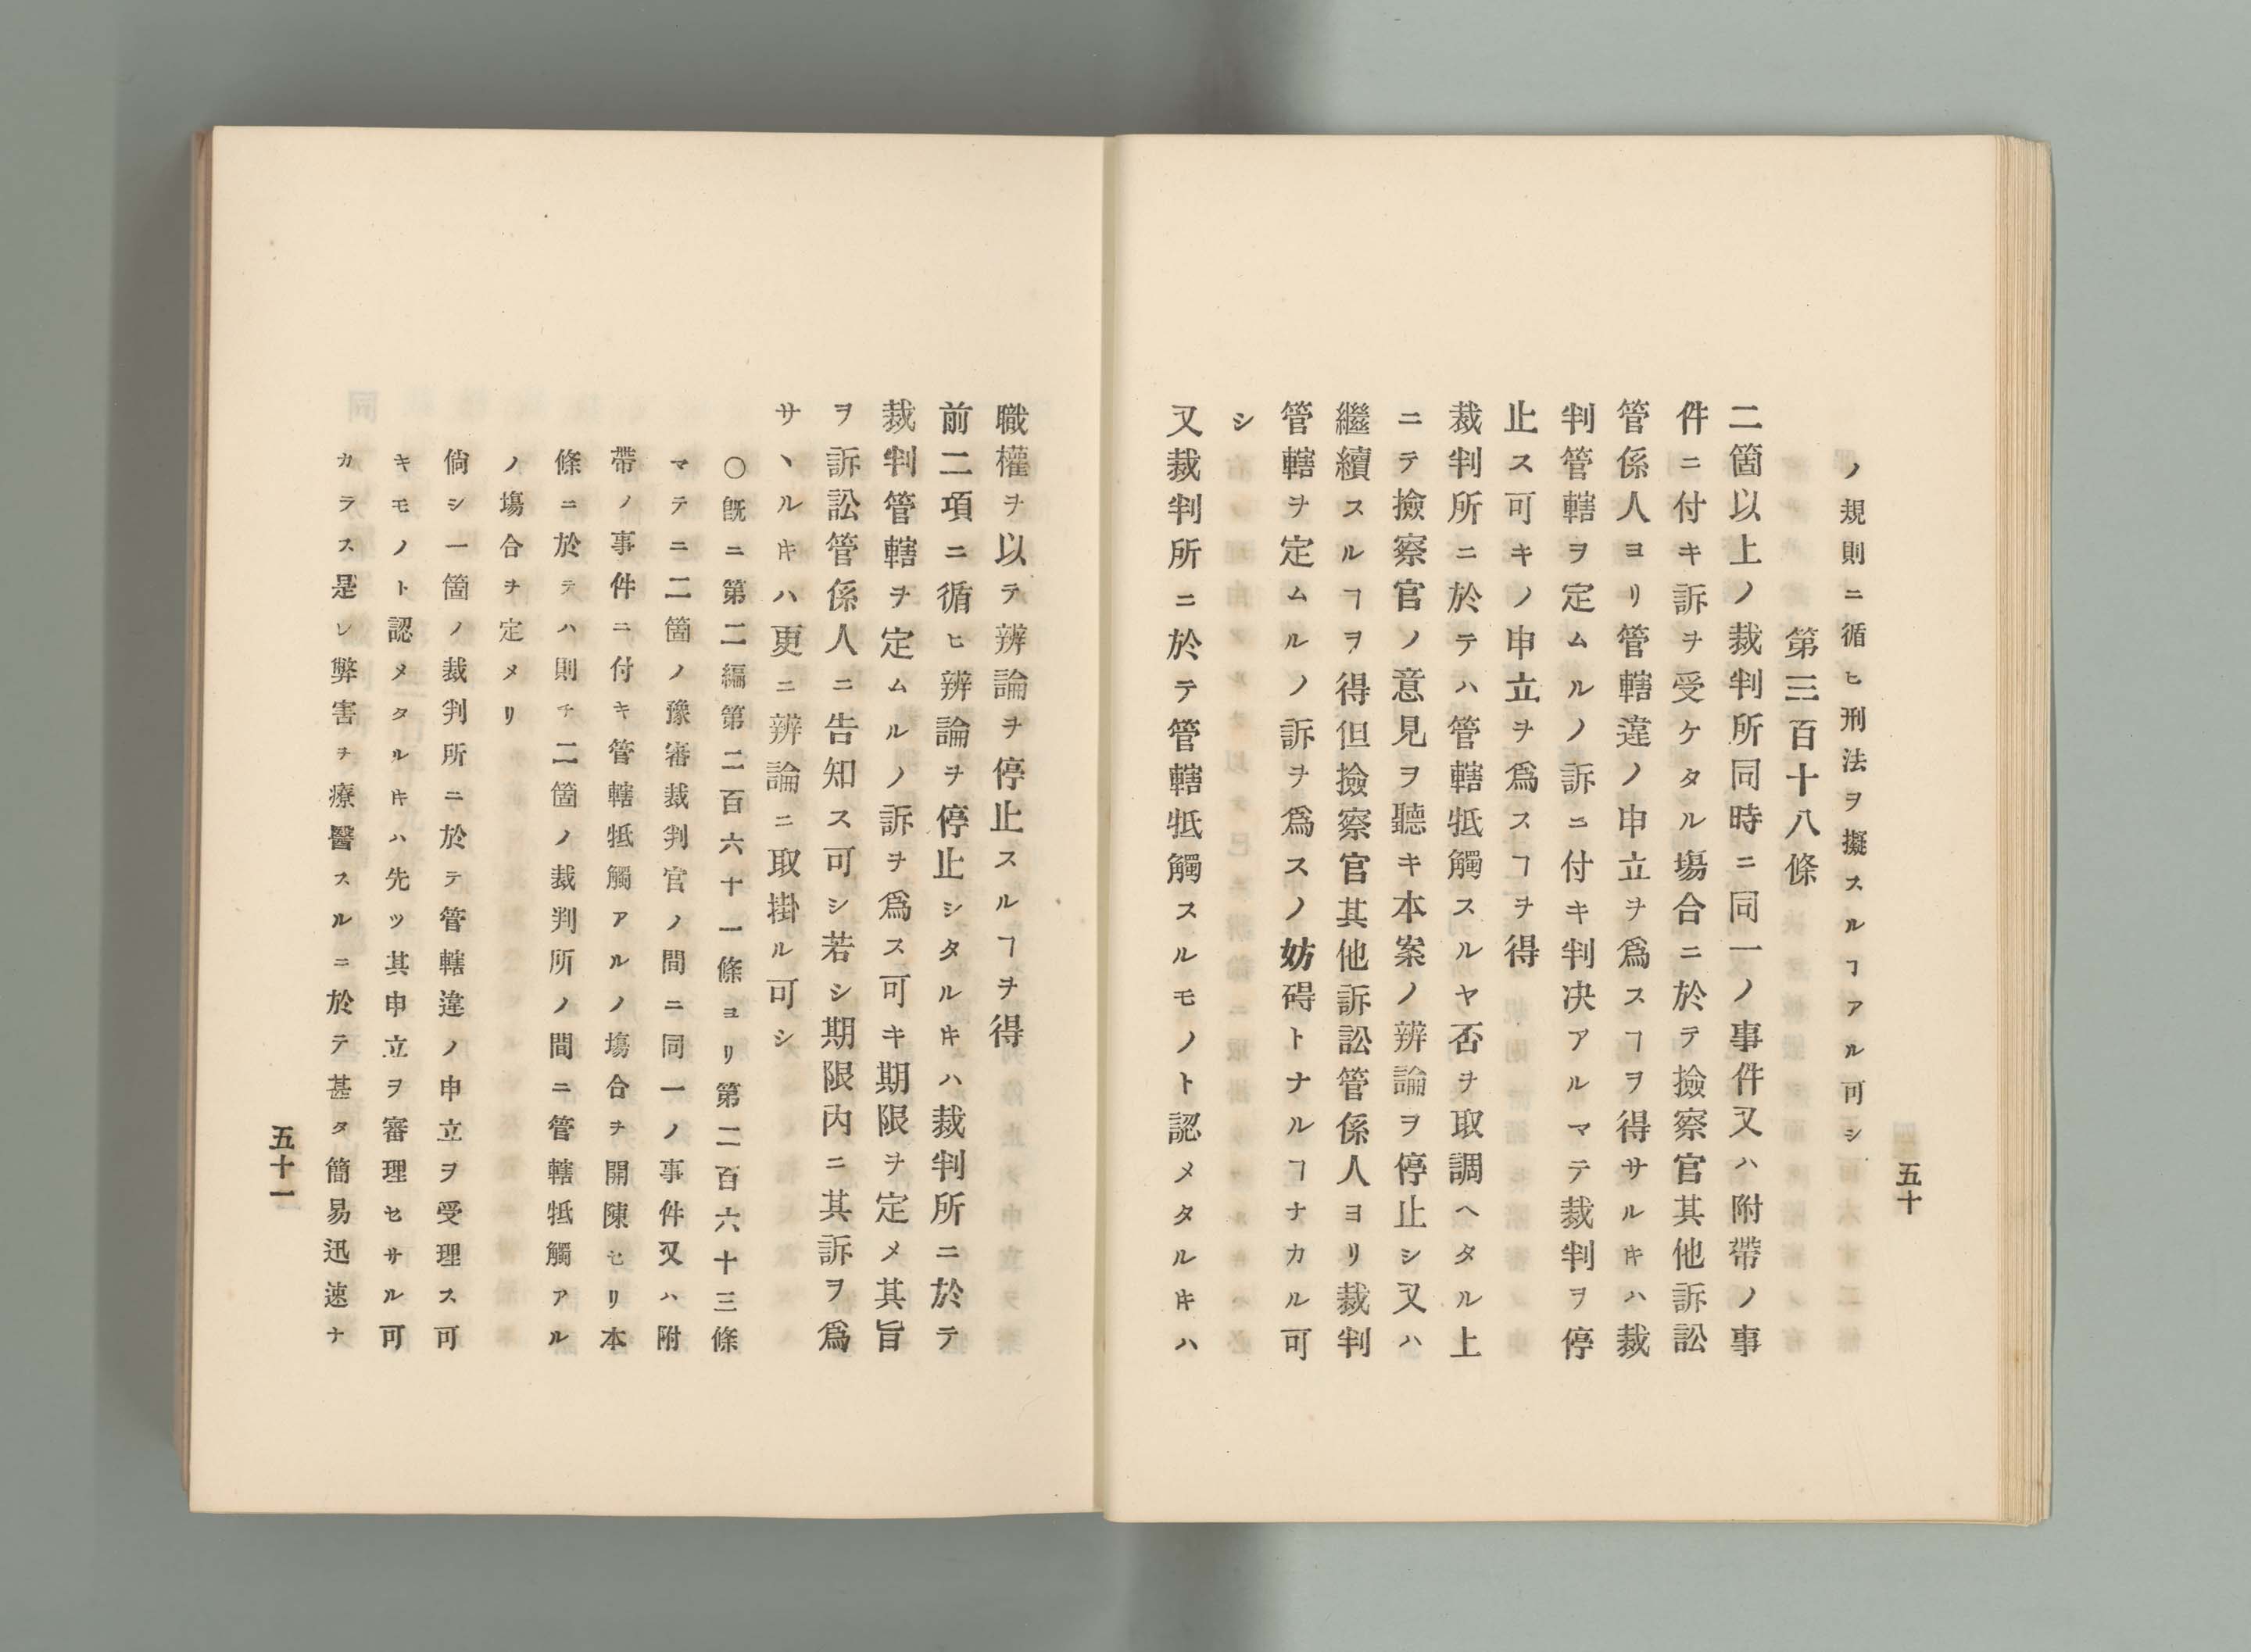 五十
ノ規則ニ循ヒ刑法ヲ擬スルヿアル可シ
第三百十八條
二箇以上ノ裁判所同時ニ同一ノ事件又ハ附帶ノ事
件ニ付キ訴ヲ受ケタル塲合ニ於テ撿察官其他訴訟
管係人ヨリ管轄違ノ申立ヲ爲スヿヲ得サルキハ裁
判管轄ヲ定ムルノ訴ニ付キ判决アルマテ裁判ヲ停
止ス可キノ申立ヲ爲スヿヲ得
裁判所ニ於テハ管轄牴觸スルヤ否ヲ取調ヘタル上
ニテ撿察官ノ意見ヲ聽キ本案ノ辨論ヲ停止シ又ハ
繼續スルヿヲ得但撿察官其他訴訟管係人ヨリ裁判
管轄ヲ定ムルノ訴ヲ爲スノ妨碍トナルヿナカル可
シ
又裁判所ニ於テ管轄牴觸スルモノト認メタルキハ
職權ヲ以テ辨論ヲ停止スルヿヲ得
前二項ニ循ヒ辨論ヲ停止シタルキハ裁判所ニ於テ
裁判管轄ヲ定ムルノ訴ヲ爲ス可キ期限ヲ定メ其旨
ヲ訴訟管係人ニ告知ス可シ若シ期限内ニ其訴ヲ爲
サヽルキハ更ニ辨論ニ取掛ル可シ
〇既ニ第二編第二百六十一條ヨリ第二百六十三條
マテニ二箇ノ豫審裁判官ノ間ニ同一ノ事件又ハ附
帶ノ事件ニ付キ管轄牴觸アルノ塲合ヲ開陳セリ本
條ニ於テハ則チ二箇ノ裁判所ノ間ニ管轄牴觸アル
ノ塲合ヲ定メリ
倘シ一箇ノ裁判所ニ於テ管轄違ノ申立ヲ受理ス可
キモノト認メタルキハ先ツ其申立ヲ審理セサル可
カラス是レ弊害ヲ療醫スルニ於テ甚タ簡易迅速ナ
五十一